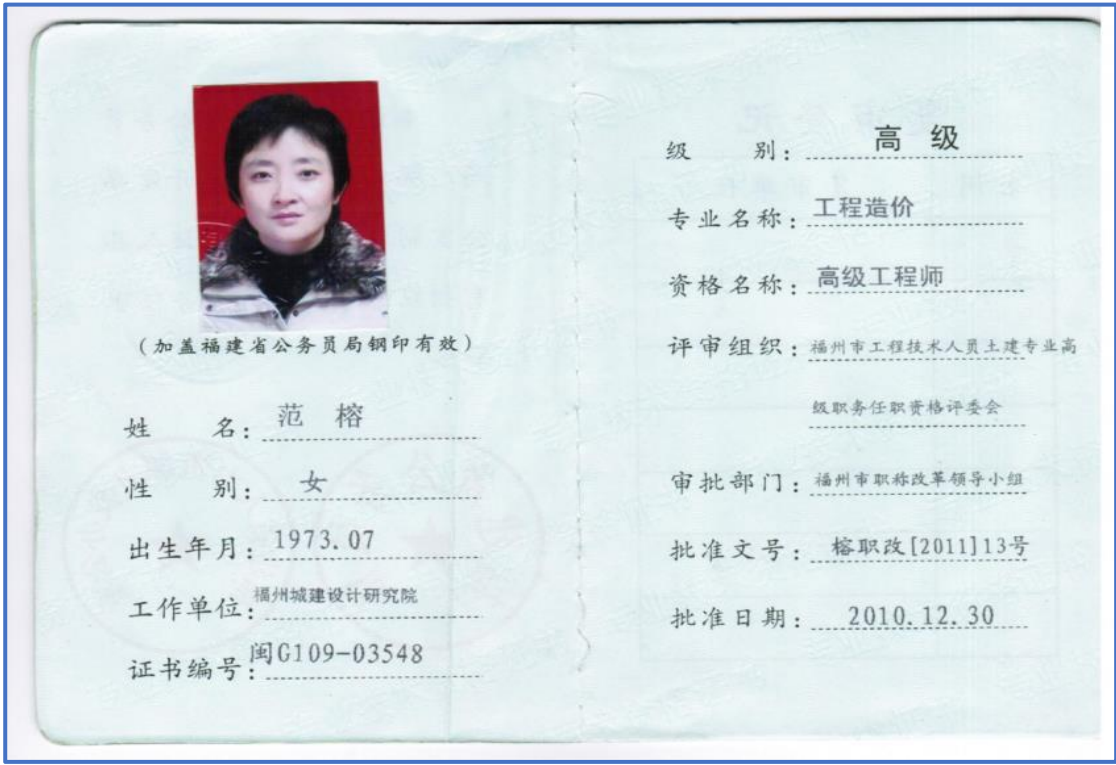 (加盖福建省公务员局钢印有效)
姓 名：范 榕
性 别：女
出生年月：1973.07
工作单位：福州城建设计研究院
证书编号：闽G109-03548
级 别：高 级
专业名称：工程造价
资格名称：高级工程师
评审组织：福州市工程技术人员土建专业高
级职务任职资格评委会
审批部门：福州市职称改革领导小组
批准文号：榕职改[2011]13号
批准日期：2010.12.30